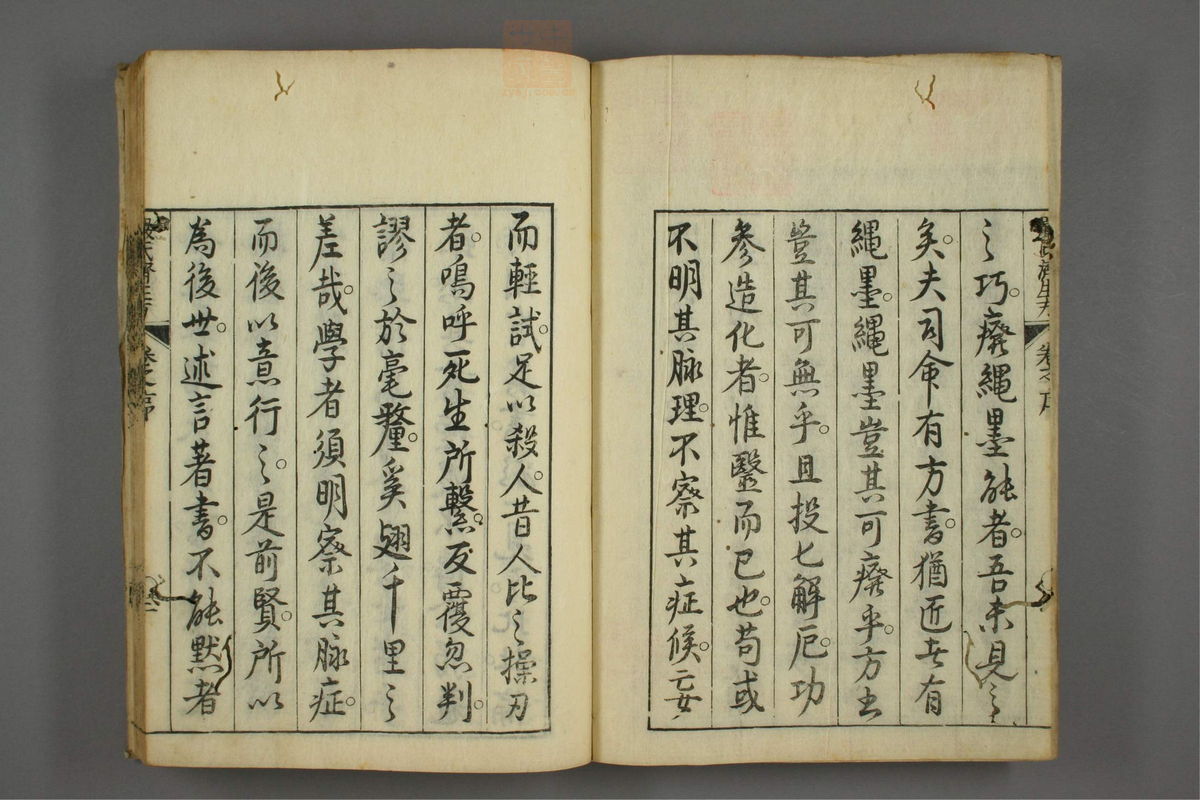 之巧廢繩墨能者吾未見之
矣夫司命有方書猶匠者有
繩墨繩墨豈其可廢乎方書
豈其可無乎且投匕解厄功
參造化者惟醫而已也苟或
不明其脉理不察其症候妄
而輕試足以殺人昔人比之操刃
者嗚呼死生所繫反覆忽判
謬之於毫釐奚翅千里之
差哉學者須明察其脉症
而後以意行之是前賢所以
為後世述言著書不能默者